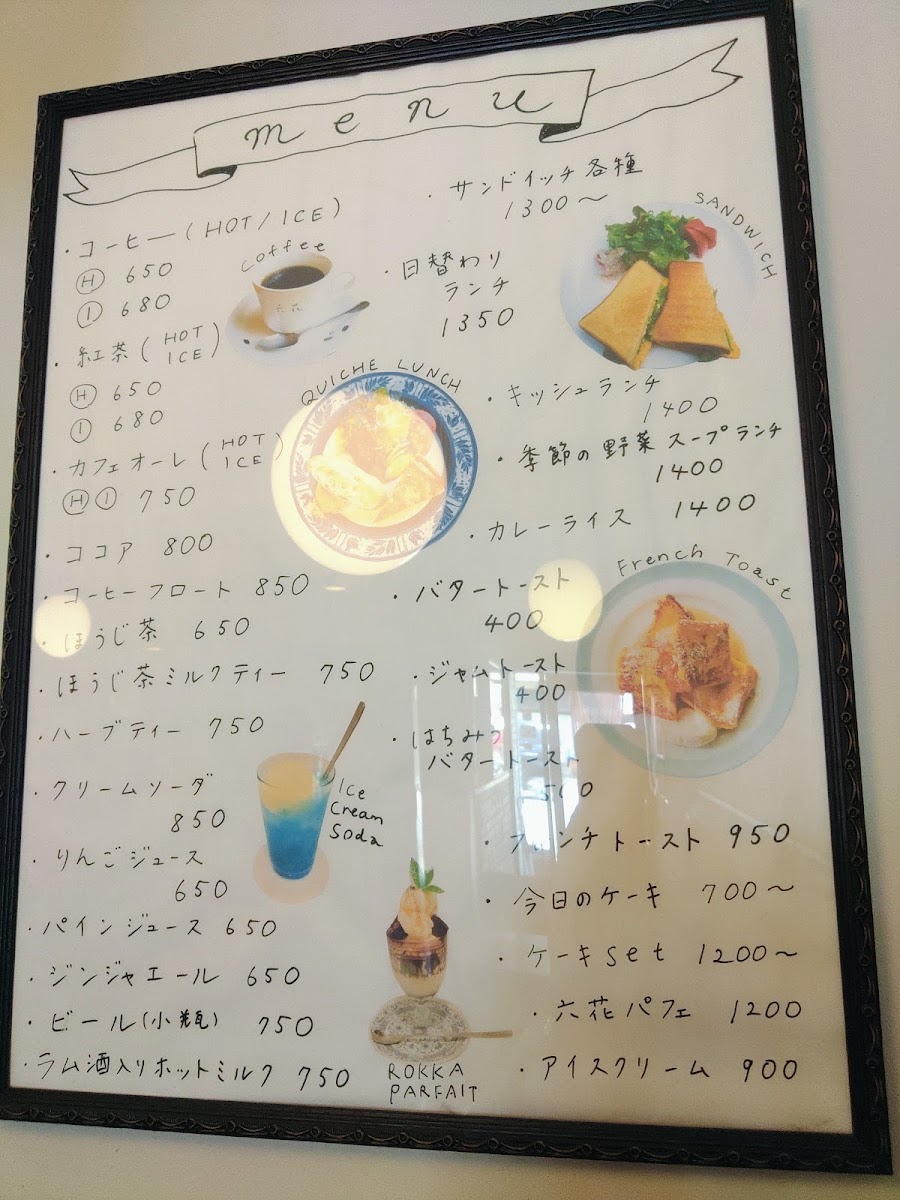 menu
・コーヒー(HOT/ICE)
Ⓗ 650
Ⓘ 680
coffee
六花
・紅茶(HOT
ICE)
Ⓗ 650
Ⓘ 680
・カフェオーレ(HOT
ICE)
ⒽⒾ 750
・ココア 800
・コーヒーフロート 850
・ほうじ茶 650
・ほうじ茶ミルクティー 750
・ハーブティー 750
・クリームソーダ
850
Ice
Cream
Soda
・りんごジュース
650
・パインジュース 650
・ジンジャエール 650
・ビール(小瓶) 750
・ラム酒入りホットミルク 750
・サンドイッチ各種
1300〜
SANDWICH
・日替わり
ランチ
1350
QUICHE LUNCH
・キッシュランチ
1400
・季節の野菜スープランチ
1400
・カレーライス 1400
・バタートースト
400
French Toast
・ジャムトースト
400
・はちみつ
バタートースト
500
・フレンチトースト 950
・今日のケーキ 700〜
・ケーキset 1200〜
・六花パフェ 1200
ROKKA
PARFAIT
・アイスクリーム 900